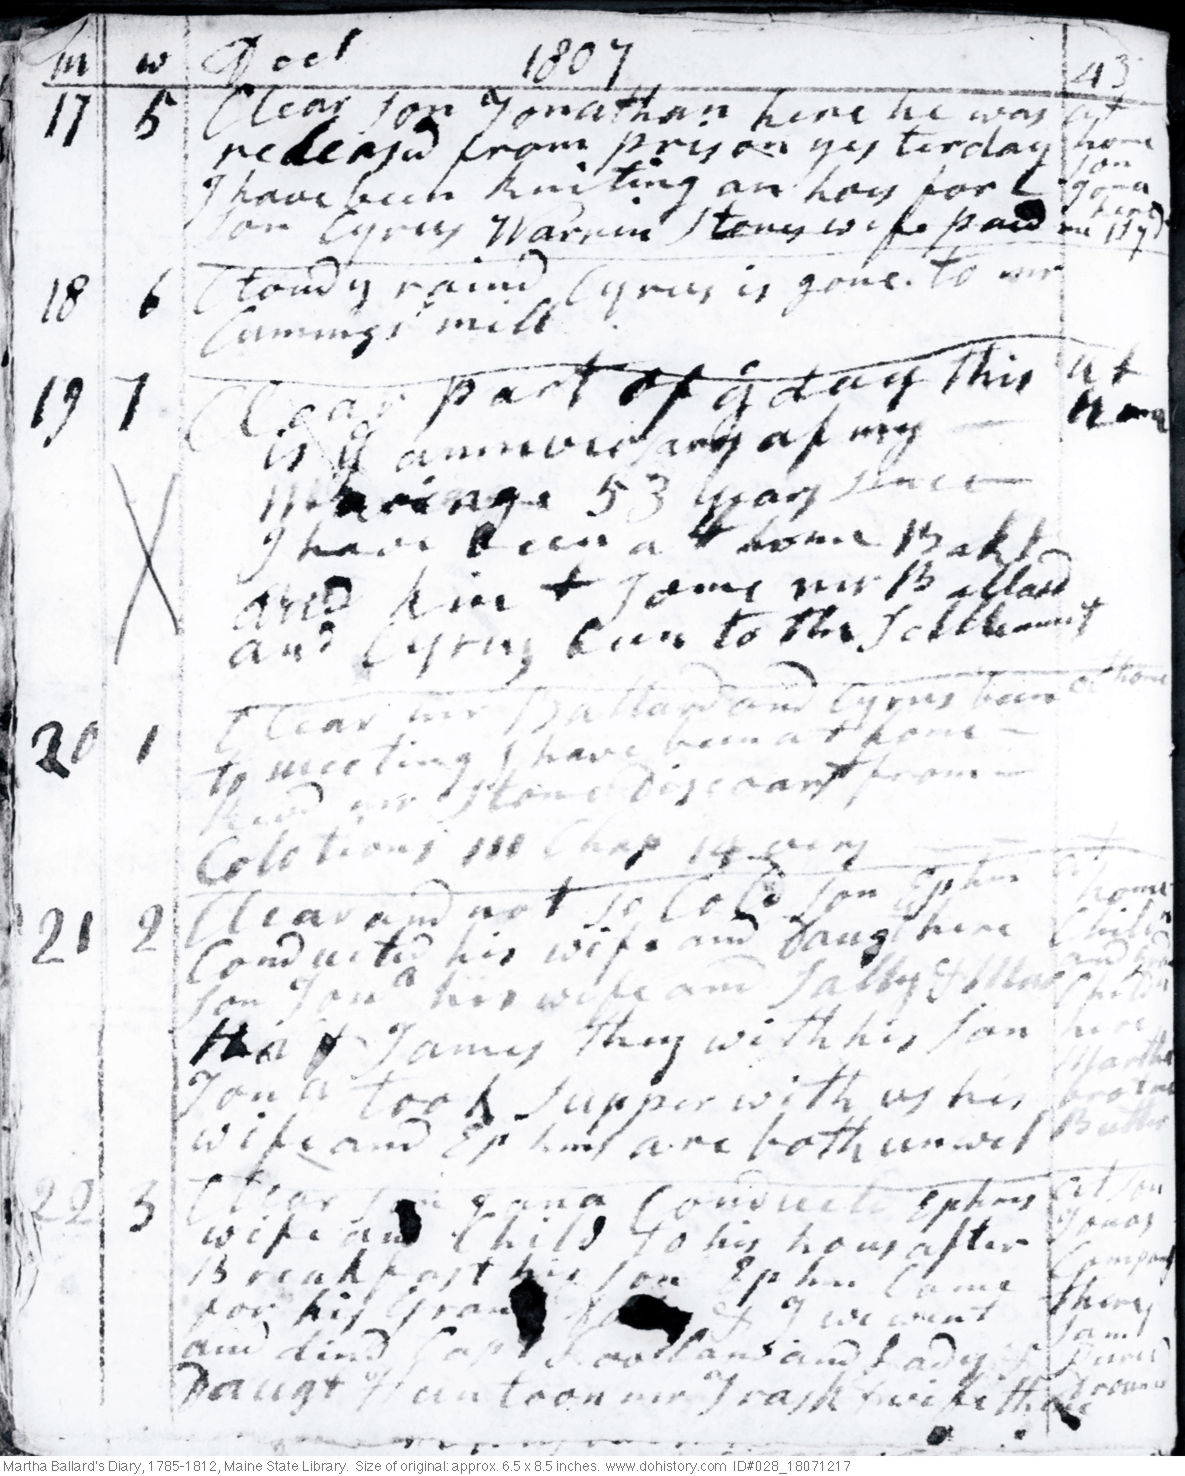 m w Decr 1807 43
17 5 Clear son Jonathan here he was
released from prison yesterday
I have been knitting on hoes for
son Cyrus Warrin Stones wife paid
at
home
son
Jona
here
18 6 Cloudy raind Cyrus is gone to mr
Cummings mill
19 7 Clear part of ye day this
is ye anniversary of my
Mariage 53 years since
I have been at home Bakt
and
mr Ballard
and Cyrus been to the Settlement
at
home
20 1 Clear mr Ballard and Cyrus been
to meeting I have been at home
mr Stone Discoars from
Colotions III Chap 14 vers
at home
21 2 Clear and not so Cold son Ephm
Conducted his wife and Daug here
son Jona his wife and Sally &
James they with his son
Jona took supper with us his
wife and Ephms are both unwel
at
home
Childn
and
Childn
here
Martha
Butter
22 3 Clear son Jona Conduct Ephms
wife and Child to his hous after
Breakfast his son Ephm Came
for his Grand & I we went
and dind Capt and Lady &
Daugt mr Trask & wife
at son
Jonas
Company
there
Martha Ballard's Diary, 1785-1812, Maine State Library. Size of original: approx. 6.5 x 8.5 inches. www.dohistory.com ID#028_18071217